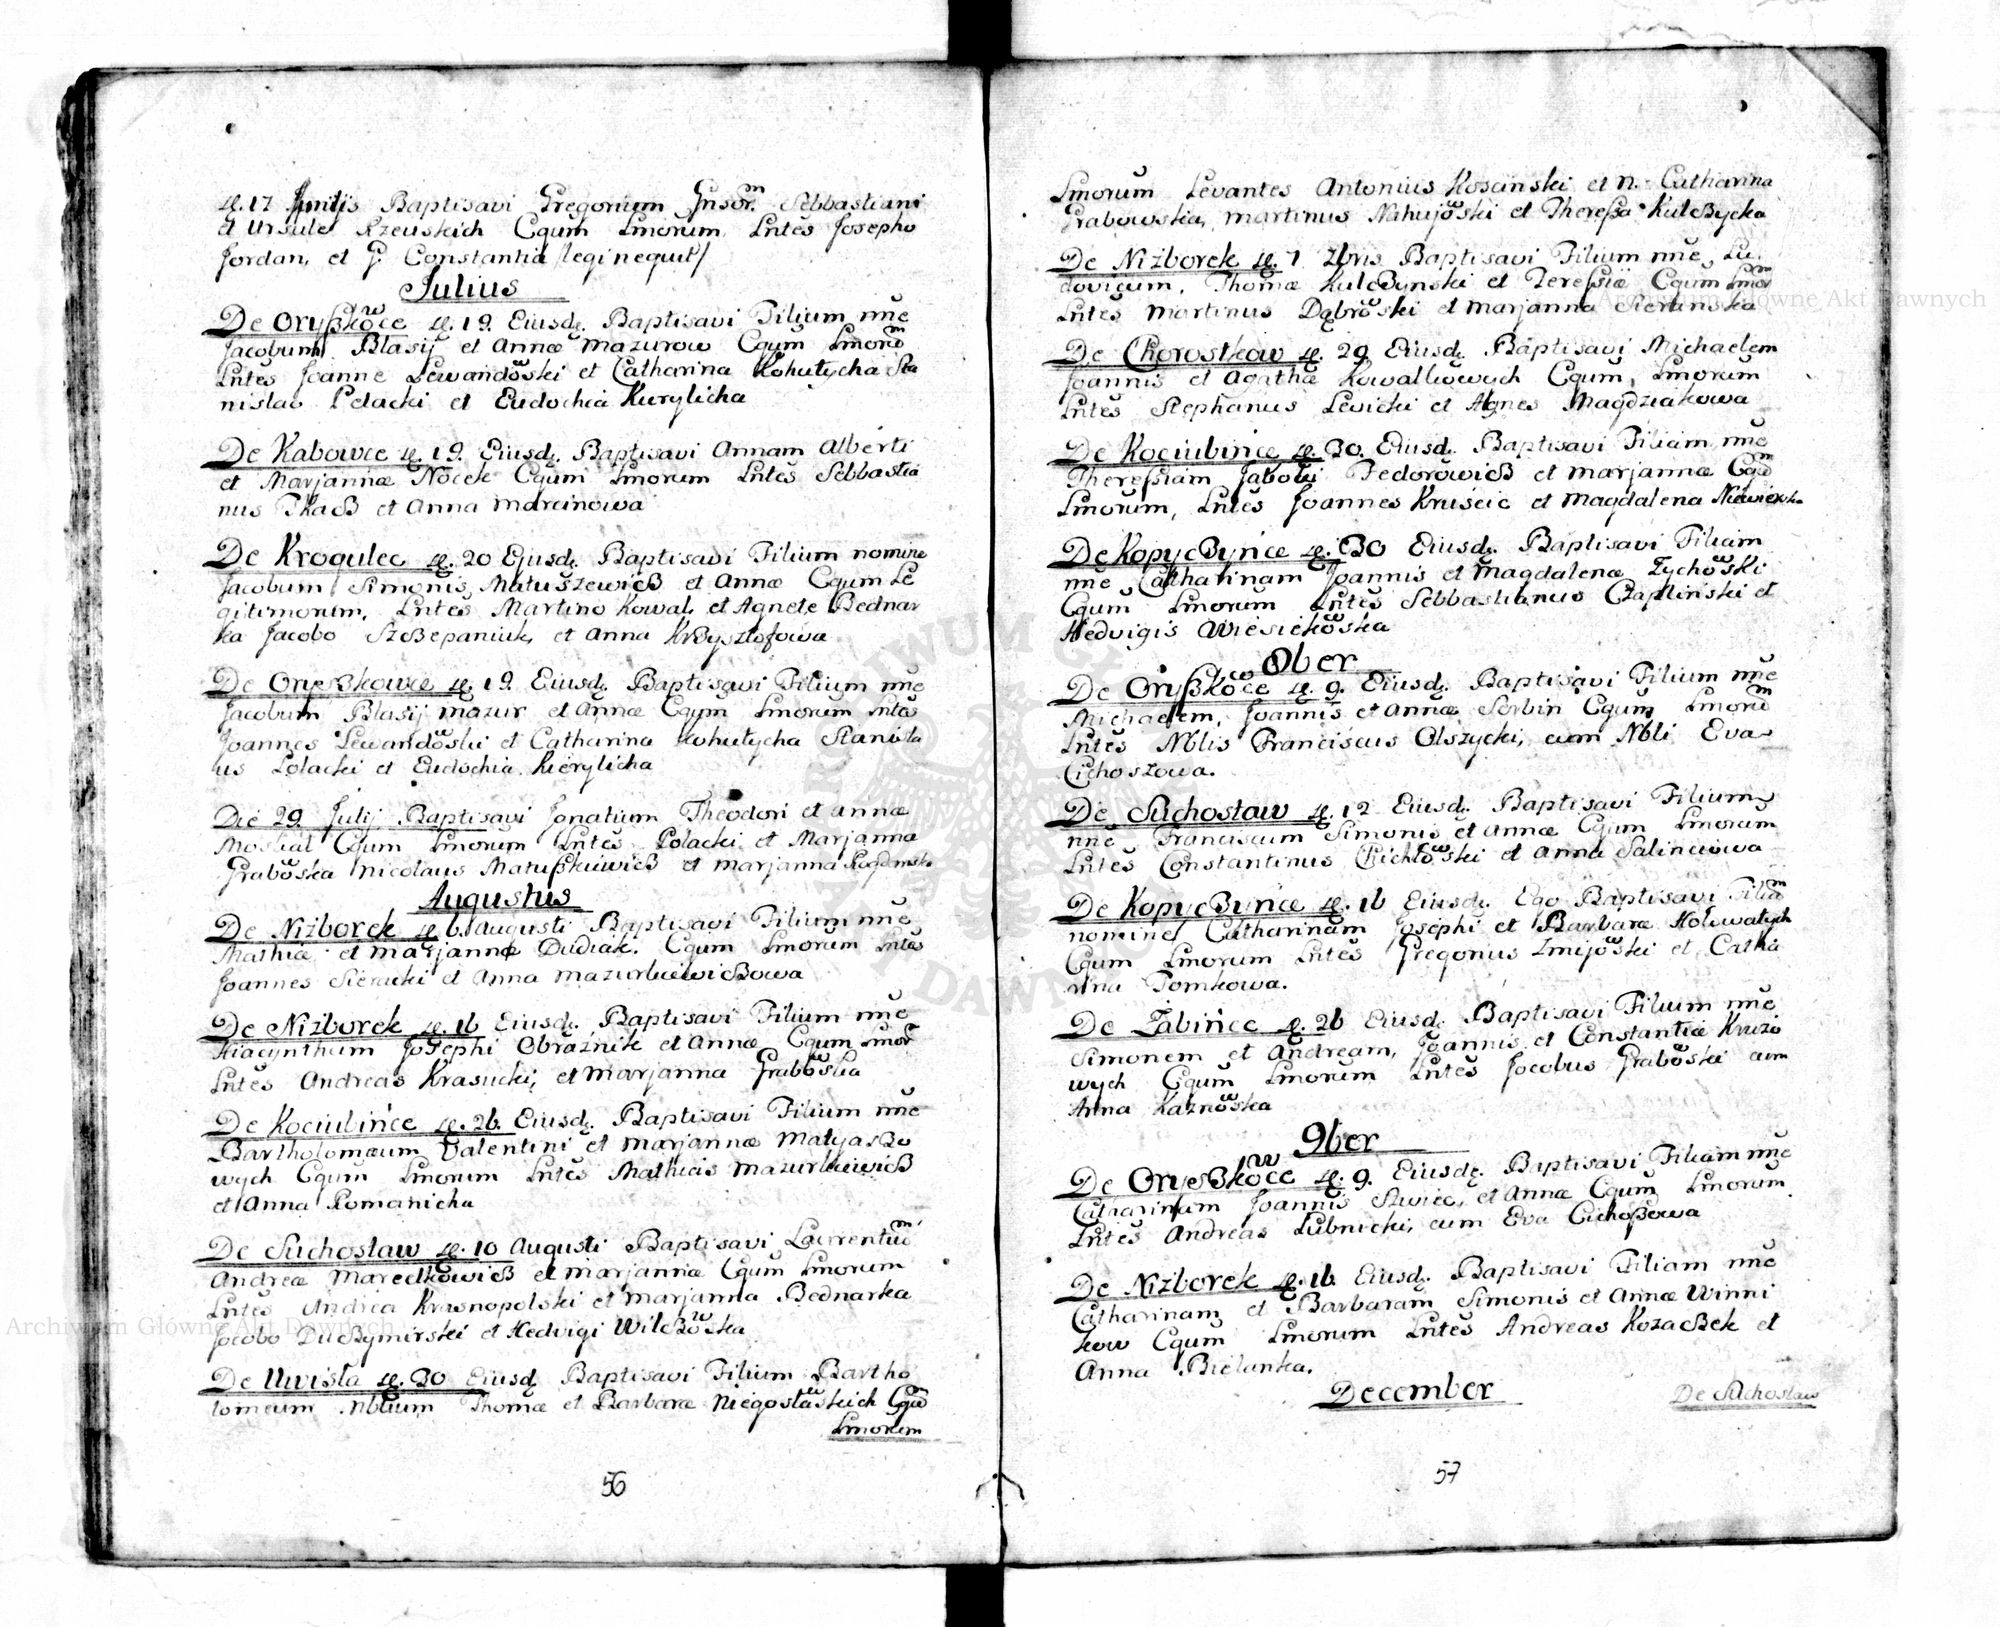 d. 17 Junijs Baptisavi Gregorium Gnsor.m Sebbastiani
et Ursulę Rzewskich Cgum Lmorum Lntes Josepho
Jordan, et G. Constantia /legi nequit/
Julius
De Oryßkowce d. 19. Eiusd. Baptisavi Filium nne
Jacobum Blasij et Annæ Mazurow Cgum Lmorum
Lntes Joanne Lewandowski et Catharina Kohutycha Sta
nislao Polacki et Eudochia Kurylicha
De Kabowce d. 19. Eiusd. Baptisavi Annam Alberti
et Marjannæ Nocek Cgum Lmorum Lntes Sebbastia
nus Tkacz et Anna Marcinowa
De Krogulec d. 20 Ejusd. Baptisavi Filium nomine
Jacobum Simonis Matuszewicz et Annæ Cgum Le
gitimorum, Lntes Martino Kowal, et Agnete Bednar
ka Jacobo Szczepaniuk, et Anna Krzysztofowa
De Oryszkowce d. 19. Eiusd. Baptisavi Filium nne
Jacobum Blasij Mazur et Annæ Cgum Lmorum Lntes
Joannes Lewandowski et Catharina Kohutycha Stanisla
us Polacki et Eudochia Kierylicha
Die 29. Julij Baptisavi Jgnatium Theodori et Annæ
Moskal Cgum Lmorum Lntes Polacki et Marjanna
Grabowska Nicolaus Matußkiewicz et Marjanna
Augustus
De Niżborek d. 6. Augusti Baptisavi Filium nne
Mathiæ et Marjannæ Dudiak. Cgum Lmorum Lntes
Joannes Sieracki et Anna Mazurkiewiczowa
De Niżborek d. 16 Eiusd. Baptisavi Filium nne
Hiacynthum Josephi Obraznik et Annæ Cgum Lmor
Lntes Andreas Krasucki, et Marjanna Grabowska
De Kociubińce d. 26. Eiusd. Baptisavi Filium nne
Bartholomæum Valentini et Marjannæ Matyaszo
wych Cgum Lmorum Lntes Mathias Mazurkiewicz
et Anna Romanicha
De Suchostaw d. 10 Augusti Baptisavi Laurentium
Andreæ Maredkowicz et Marjannæ Cgum Lmorum
Lntes Andrea Krasnopolski et Marjanna Bednarka
Jocobo Duczymirski et Hedvigi Wilczowska
De Uwisła d. 30 Eiusd. Baptisavi Filium Bartho
lomeum Nblium Thomæ et Barbaræ Niegosławskich Cgum
Lmorum
56
Lmorum Levantes Antonius Koscinski et N. Catharina
Grabowska, Martinus Nahujowski et Thereßa Kulczycka
De Niżborek d. 7. Zbris Baptisavi Filium nne, Lu
dovicum, Thomæ Kulczynski et Tereßiæ Cgum Lmor
Lntes Martinus Dąbrowski et Marjanna
De Chorostkow d. 29 Eiusd. Baptisavi Michaelem
Joannis et Agathæ Kowalkowych Cgum, Lmorum
Lntes Stephanus Levicki et Agnes Magdziakowa
De Kociubińce d. 30. Eiusd. Baptisavi Filiam nne
Thereßiam Jabobi Fedorowicz et Marjannæ Cgum
Lmorum, Lntes Joannes Kruścic et Magdalena
De Kopyczyńce d. 30 Eiusd. Baptisavi Filiam
nne Catharinam Joannis et Magdalenæ Zychowski
Cgum Lmorum Lntes Sebbastianus Czaplinski et
Hedvigis Wiesiekowska
8ber
De Oryßkowce d. 9. Eiusd. Baptisavi Filium nne
Michaelem, Joannis et Annæ Serbin Cgum Lmorum
Lntes Nblis Franciscus Olszycki, cum Nbli Eva
Cichoszowa.
De Suchostaw d. 12 Eiusd. Baptisavi Filium
nne Franciscum Simonis et Annæ Cgum Lmorum
Lntes Constantinus Chichłowski et Anna Salinciowa
De Kopyczyńce d. 16 Eiusd. Ego Baptisavi Filiam
nomine Catharinam Josephi et Barbaræ Holowatych
Cgum Lmorum Lntes Gregorius Zmijowski et Catha
rina Tomkowa.
De Żabińce d. 26 Eiusd. Baptisavi Filium nne
Simonem et Andream, Joannis et Constantiæ Kruzo
wych Cgum Lmorum Lntes Jocobus Grabowski cum
Anna Kaznowska
9ber
De Oryeszkowce d. 9. Eiusd. Baptisavi Filiam nne
Catharinam Joannis Szwiec, et Annæ Cgum Lmorum
Lntes Andreas Lubnicki, cum Eva Cichoßowa
De Niżborek d. 16. Eiusd. Baptisavi Filiam nne
Catharinam et Barbaram Simonis et Annæ Winni
kow Cgum Lmorum Lntes Andreas Kozaczek et
Anna Bielanka.
December
De Suchostaw
57
Archiwum Główne Akt Dawnych
Archiwum Główne Akt Dawnych
ARCHIWUM GŁÓWNE AKT DAWNYCH